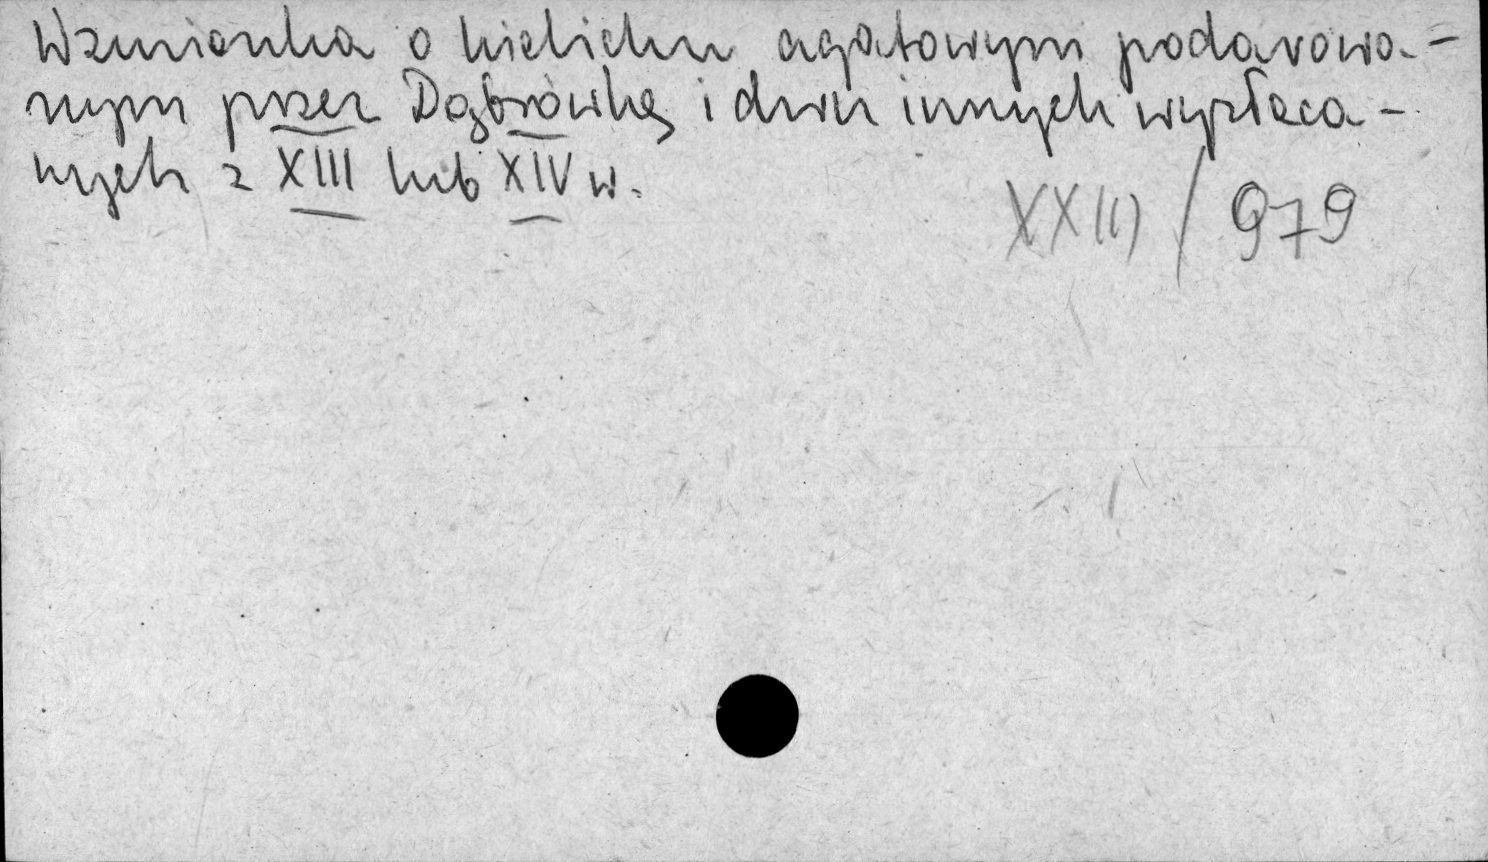 Wzmianka o kielichu agatowym podarowa-
nym przez Dąbrówkę i dwu innych wyzłaca-
nych z XIII lub XIV w.
XXIII / 979